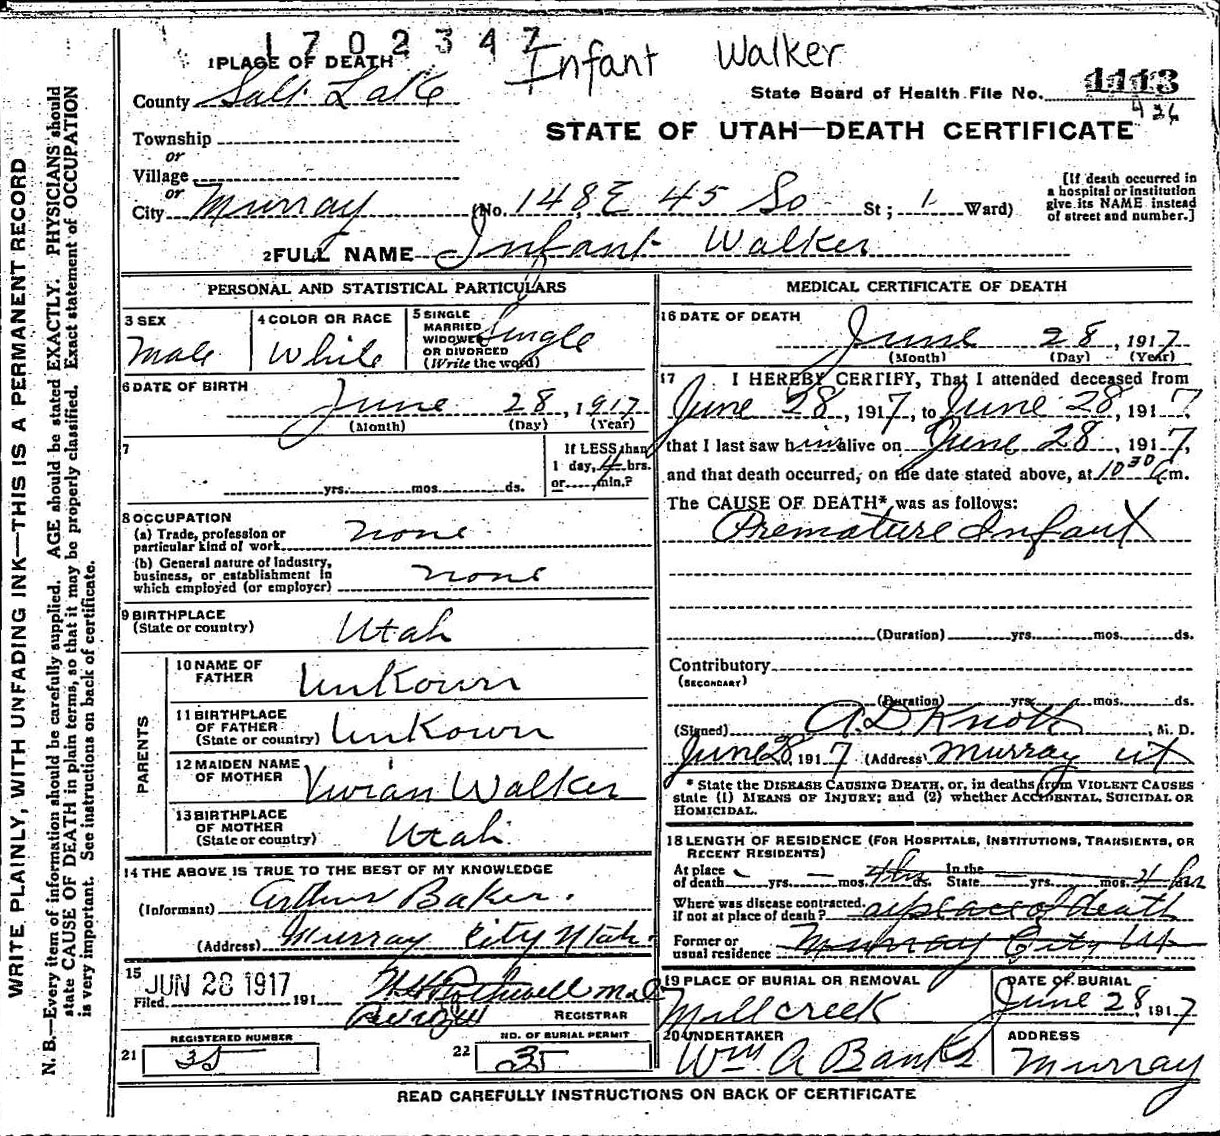 1 7 0 2 3 4 7
Infant Walker
1 PLACE OF DEATH
County Salt Lake
State Board of Health File No. 1113
426
Township
or
Village
or
STATE OF UTAH—DEATH CERTIFICATE
City Murray (No. 148 E 45 So St; 1 Ward)
[If death occurred in
a hospital or institution
give its NAME instead
of street and number.]
2 FULL NAME Infant Walker
PERSONAL AND STATISTICAL PARTICULARS
3 SEX
Male
4 COLOR OR RACE
White
5 SINGLE
MARRIED
WIDOWED
OR DIVORCED
(Write the word)
Single
6 DATE OF BIRTH
June 28, 1917
(Month) (Day) (Year)
7
yrs. mos. ds.
If LESS than
1 day, 4 hrs.
or min.?
8 OCCUPATION
(a) Trade, profession or
particular kind of work none
(b) General nature of Industry,
business, or establishment in
which employed (or employer) none
9 BIRTHPLACE
(State or country) Utah
PARENTS
10 NAME OF
FATHER Unkown
11 BIRTHPLACE
OF FATHER
(State or country) Unkown
12 MAIDEN NAME
OF MOTHER Vivian Walker
13 BIRTHPLACE
OF MOTHER
(State or country) Utah
14 THE ABOVE IS TRUE TO THE BEST OF MY KNOWLEDGE
(Informant) Arthur Baker.
(Address) Murray City Utah.
15
Filed JUN 28 1917 191
REGISTRAR
REGISTERED NUMBER
21 35
NO. OF BURIAL PERMIT
22 35
MEDICAL CERTIFICATE OF DEATH
16 DATE OF DEATH
June 28, 1917
(Month) (Day) (Year)
17 I HEREBY CERTIFY, That I attended deceased from
June 28, 1917, to June 28, 1917,
that I last saw him alive on June 28, 1917,
and that death occurred, on the date stated above, at 10 30 a m.
The CAUSE OF DEATH* was as follows:
Premature Infant
(Duration) yrs. mos. ds.
Contributory
(SECONDARY)
(Duration) yrs. mos. ds.
(Signed) A. D. Knott, M. D.
June 28 1917 (Address) Murray Ut
* State the DISEASE CAUSING DEATH, or, in deaths from VIOLENT CAUSES
state (1) MEANS OF INJURY; and (2) whether ACCIDENTAL, SUICIDAL OR
HOMICIDAL.
18 LENGTH OF RESIDENCE (FOR HOSPITALS, INSTITUTIONS, TRANSIENTS, OR
RECENT RESIDENTS)
At place
of death yrs. mos. 4 hrs ds. In the
State yrs. mos. 4 hrs
Where was disease contracted,
If not at place of death? at place of death
Former or
usual residence Murray City Ut
19 PLACE OF BURIAL OR REMOVAL
Millcreek
DATE OF BURIAL
June 28, 1917
20 UNDERTAKER
Wm A Banks
ADDRESS
Murray
READ CAREFULLY INSTRUCTIONS ON BACK OF CERTIFICATE
WRITE PLAINLY, WITH UNFADING INK—THIS IS A PERMANENT RECORD
N. B.—Every item of information should be carefully supplied. AGE should be stated EXACTLY. PHYSICIANS should
state CAUSE OF DEATH in plain terms, so that it may be properly classified. Exact statement of OCCUPATION
is very important. See instructions on back of certificate.